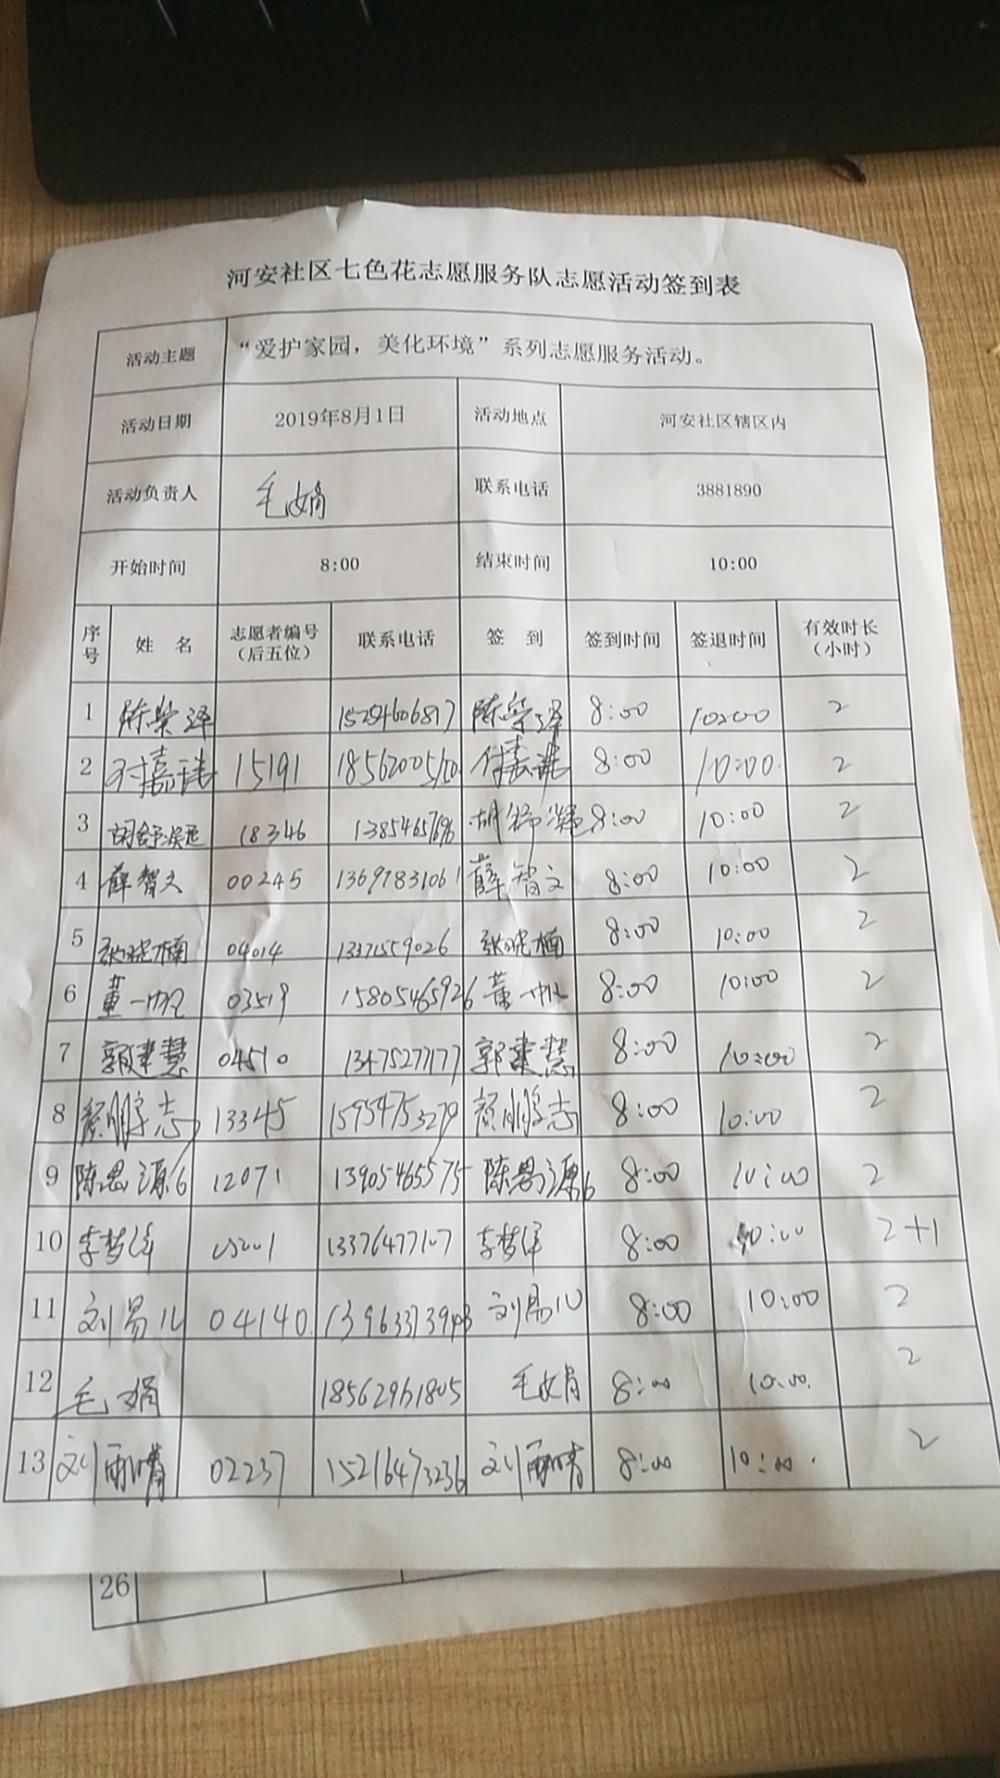 河安社区七色花志愿服务队志愿活动签到表
活动主题 “爱护家园，美化环境”系列志愿服务活动。
活动日期 2019年8月1日 活动地点 河安社区辖区内
活动负责人 毛娟 联系电话 3881890
开始时间 8:00 结束时间 10:00
序号 姓 名 志愿者编号（后五位） 联系电话 签 到 签到时间 签退时间 有效时长（小时）
1 陈荣泽 15254606817 陈荣泽 8:00 10:00 2
2 付嘉 15191 付嘉 8:00 10:00 2
3 胡舒凝 18346 13854657696 胡舒凝 8:00 10:00 2
4 薛智文 00245 13697831061 薛智文 8:00 10:00 2
5 张晓楠 04014 13371559026 张晓楠 8:00 10:00 2
6 董一帆 03519 15805465926 董一帆 8:00 10:00 2
7 郭建慧 04510 13475277177 郭建慧 8:00 10:00 2
8 颜鹏志 13345 15954753279 颜鹏志 8:00 10:00 2
9 陈思源6 12071 13905465575 陈思源6 8:00 10:00 2
10 李梦洋 05001 13376477107 李梦洋 8:00 10:00 2+1
11 刘易儿 04140 刘易儿 8:00 10:00 2
12 毛娟 18562961805 毛娟 8:00 10:00 2
13 刘雨晴 02237 15216473236 刘雨晴 8:00 10:00 2
26